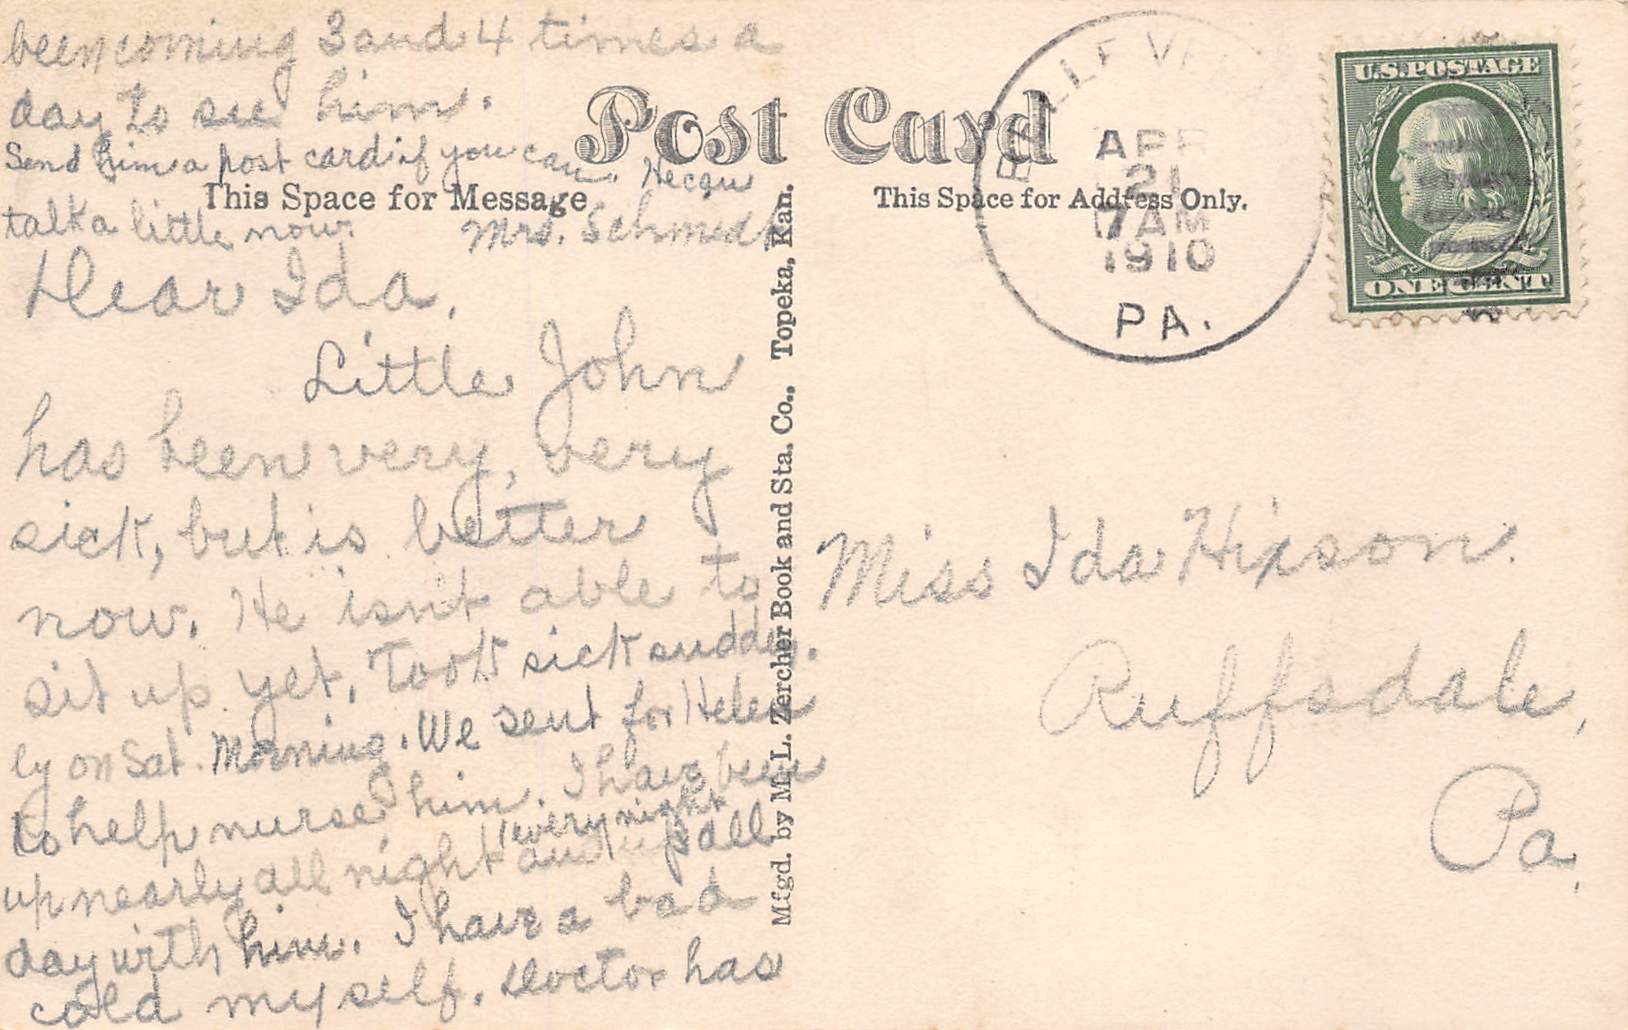 been coming 3 and 4 times a
day to see him.
Send him a post card if you can. He can
talk a little now. Mrs. Schmidt
Post Card
This Space for Message
This Space for Address Only.
BELLE VER
APR
21
7 AM
1910
PA.
U.S. POSTAGE
ONE CENT
Dear Ida,
Little John
has been very, very
sick, but is better
now. He isn't able to
sit up yet. Took sick sudden
ly on Sat. Morning. We sent for Helen
to help nurse him. I have been
up nearly all night every night and up all
day with him. I have a bad
cold myself. Doctor has
Mfgd. by M. L. Zercher Book and Sta. Co., Topeka, Kan.
Miss Ida Hixson.
Ruffsdale,
Pa.